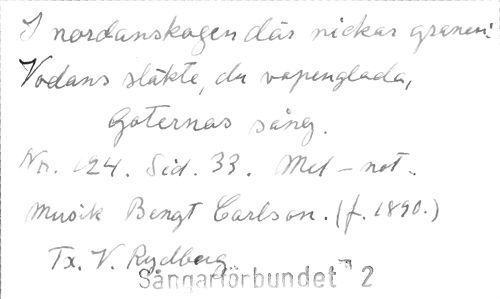 I nordanskogen där nickar granen:
Vodans släkte, du vapenglada,
Goternas sång.
Nr. 124. Sid. 33. Mel-not.
Musik Bengt Carlson. (f. 1890.)
Tx. V. Rydberg.
Sångarförbundet 2